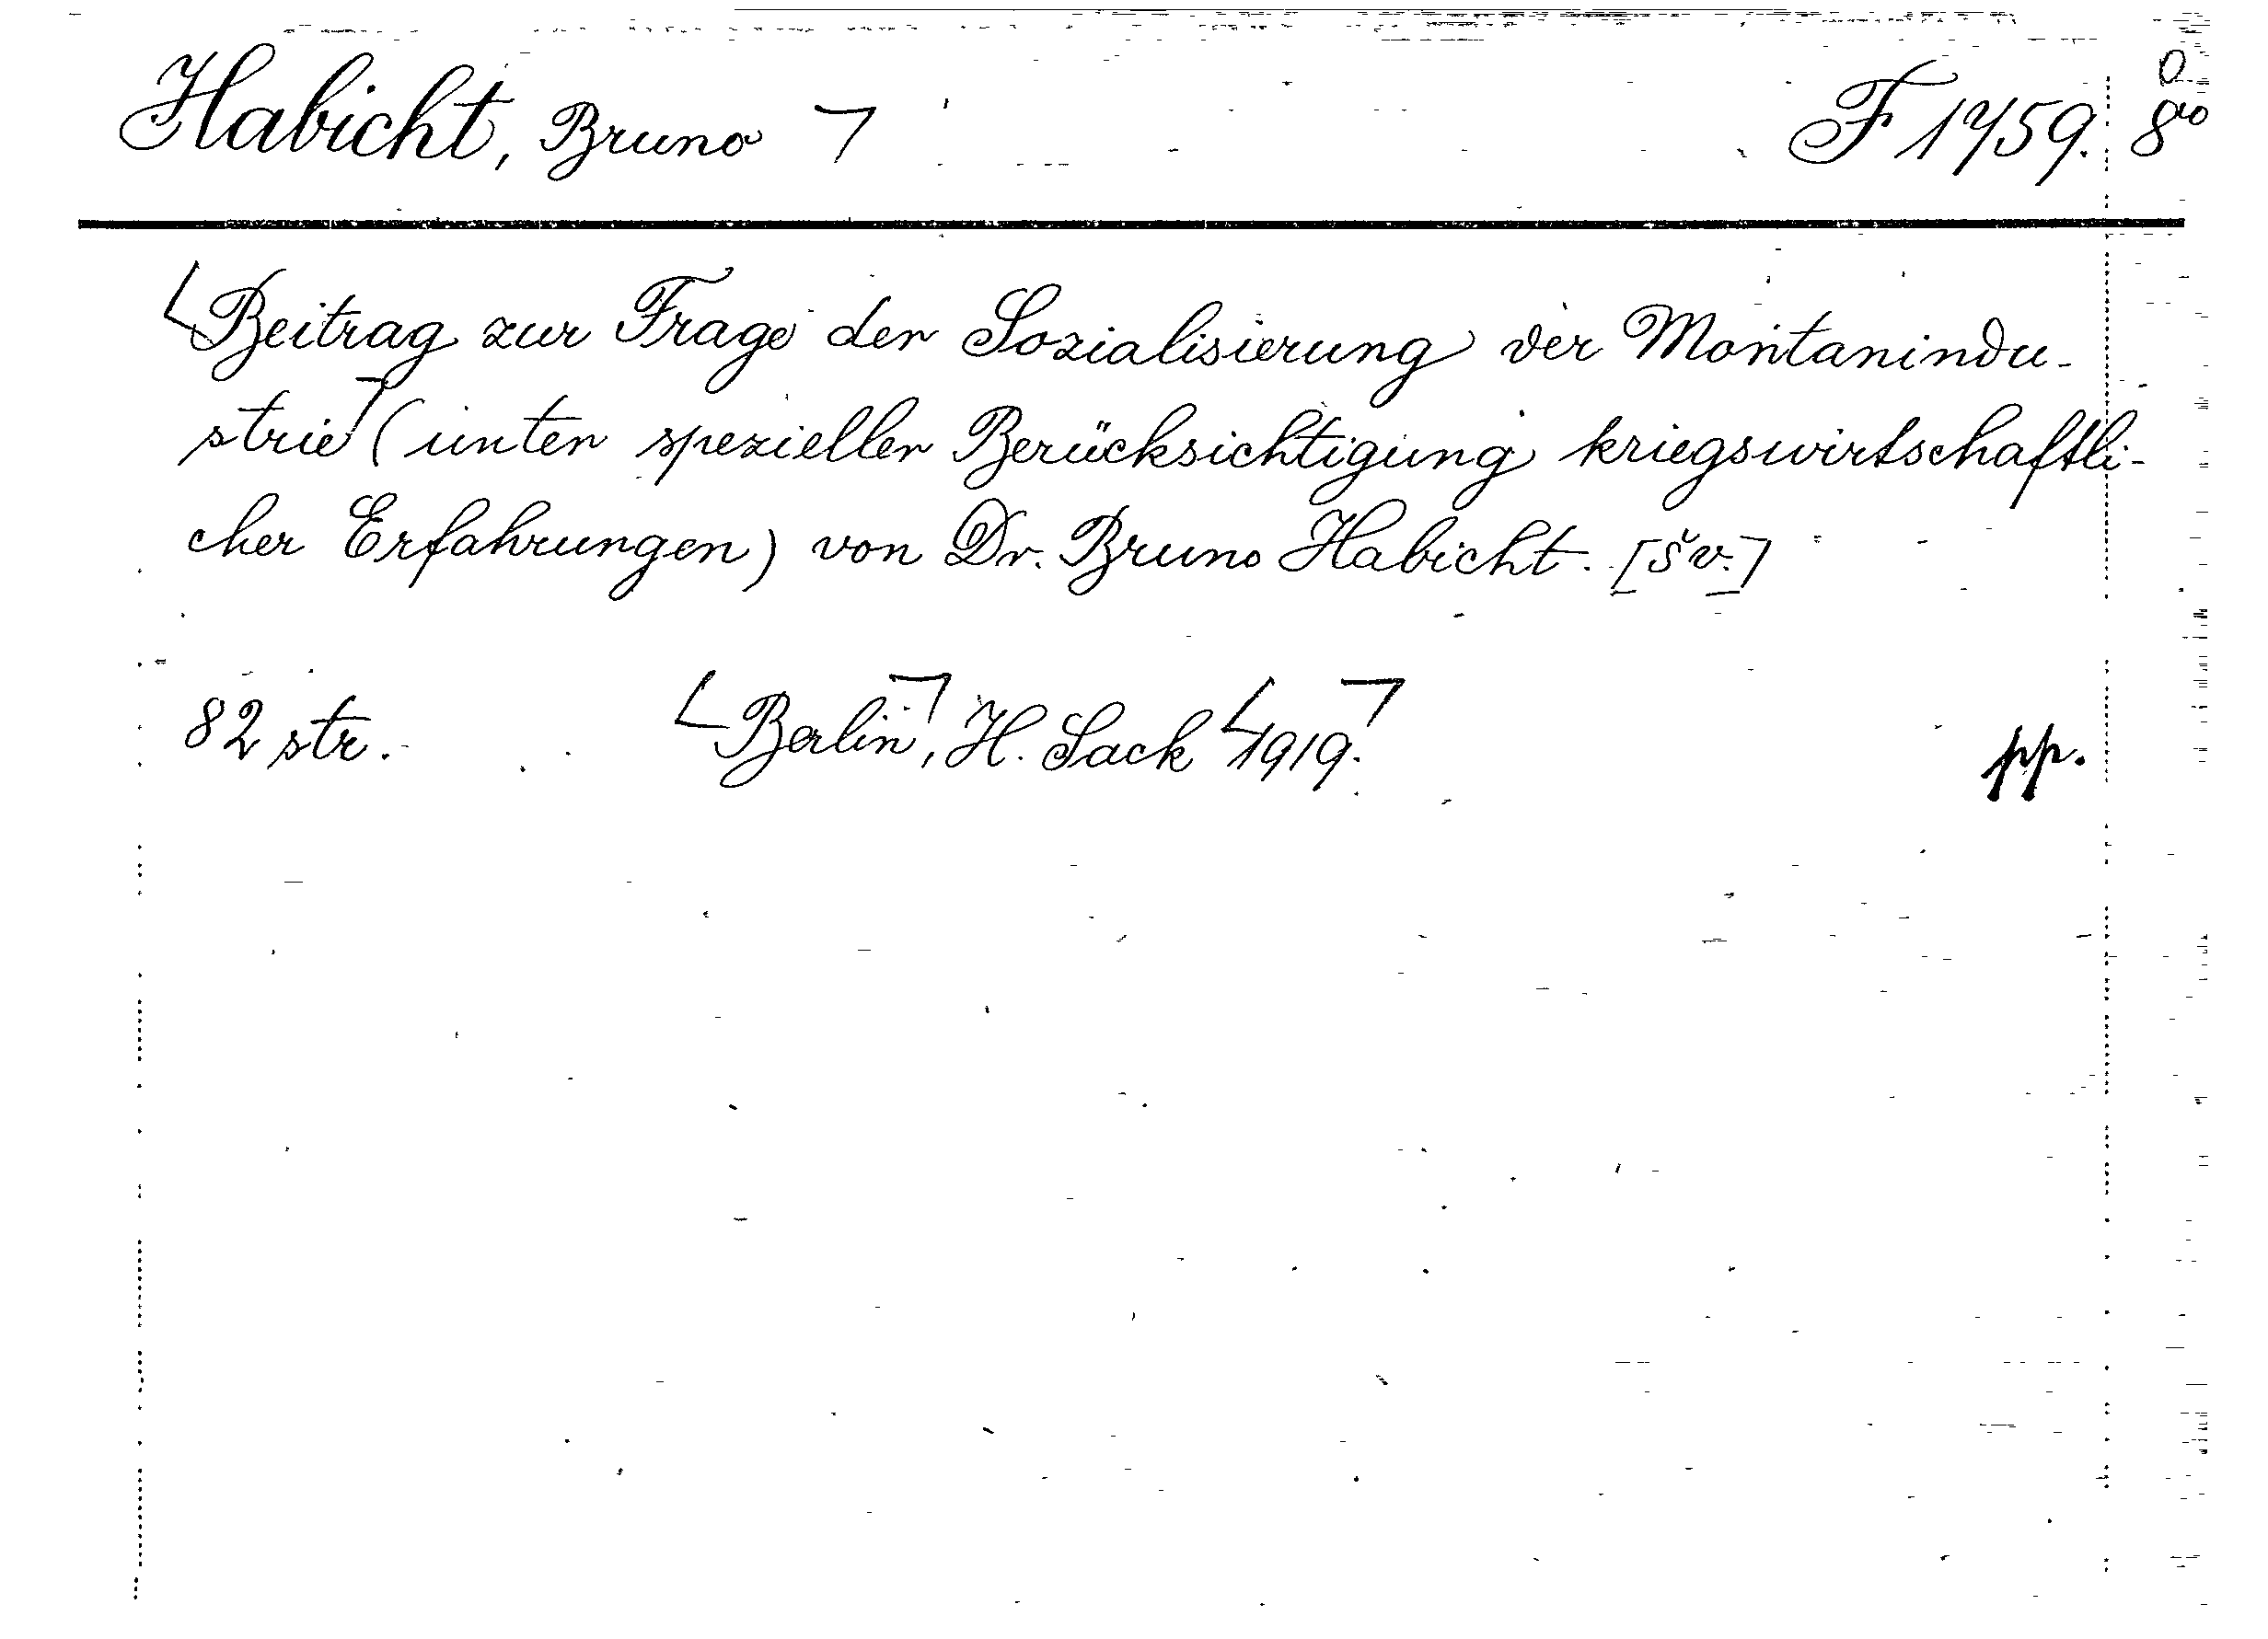 Habicht, Bruno F 1759. 8vo
Beitrag zur Frage der Sozialisierung der Montanindu-
strie (unter spezieller Berücksichtigung kriegswirtschaftli-
cher Erfahrungen) von Dr. Bruno Habicht. [Šv.]
82 str. Berlin, H. Sack 1919. pp.